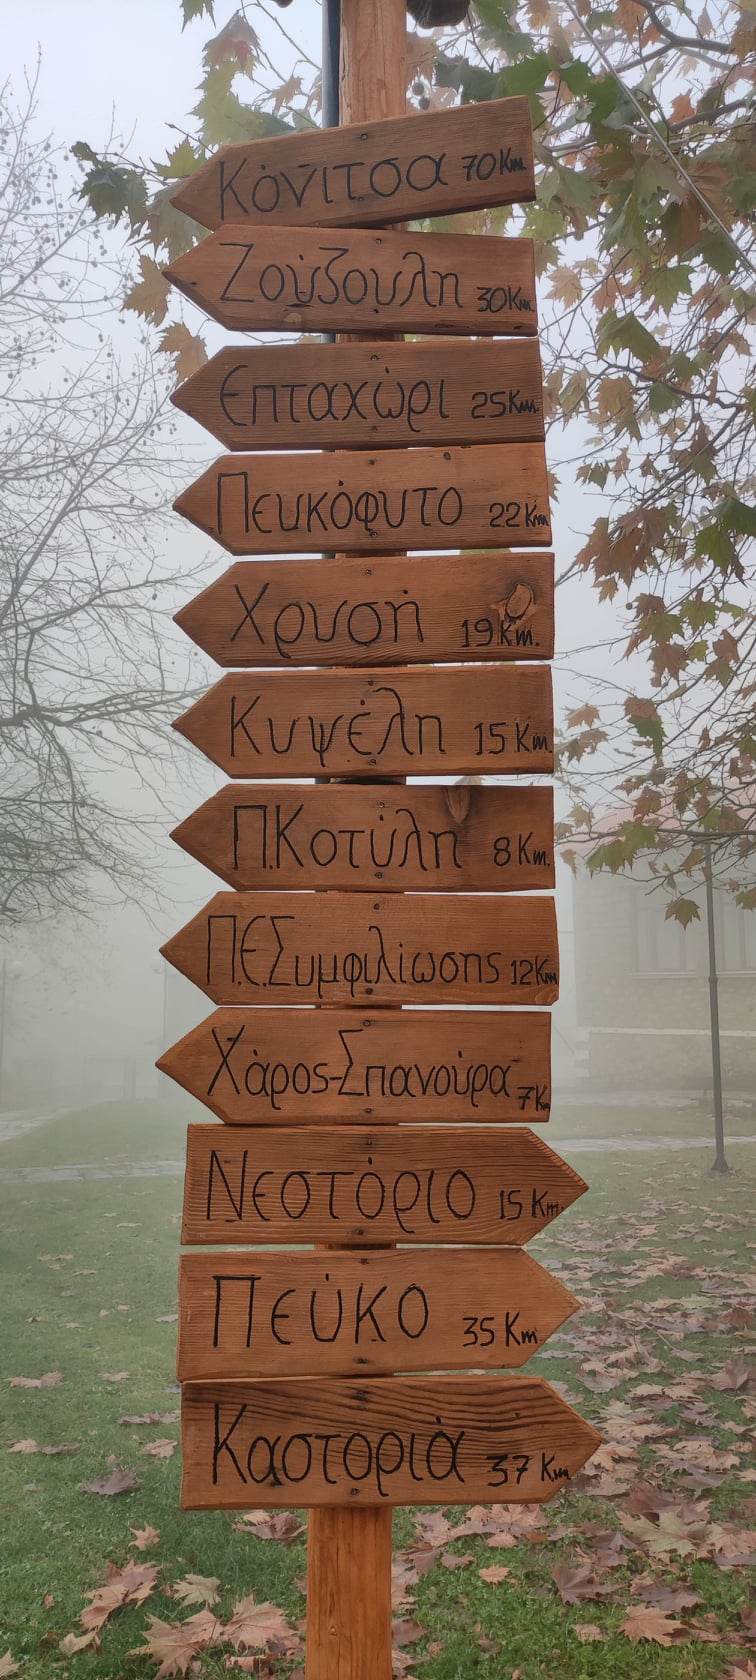 Κόνιτσα 70 Km.
Ζούζουλη 30 Km.
Επταχώρι 25 Km.
Πευκόφυτο 22 Km
Χρυσή 19 Km.
Κυψέλη 15 Km.
Π.Κοτύλη 8 Km.
Π.Ε.Συμφιλίωσης 12 Km
Χάρος-Σπανούρα 7 Km
Νεστόριο 15 Km.
Πεύκο 35 Km.
Καστοριά 37 Km.